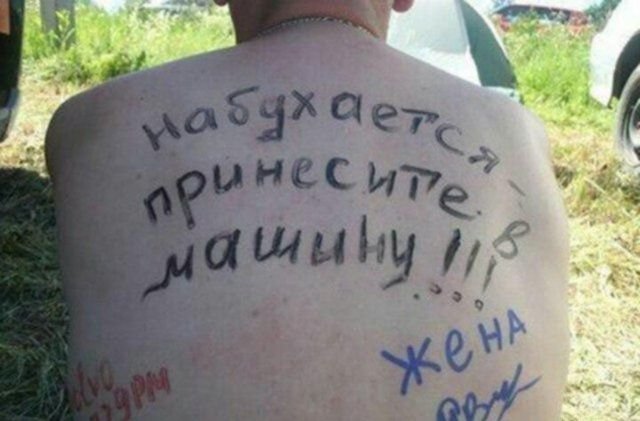 набухается -
принесите в
машину!!!
жена